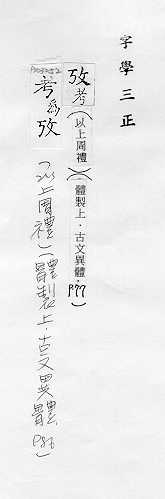 字學三正
攷考(以上周禮)(體製上·古文異體·P77)
考爲攷(以上周禮)(體製上·古文異體 P86)